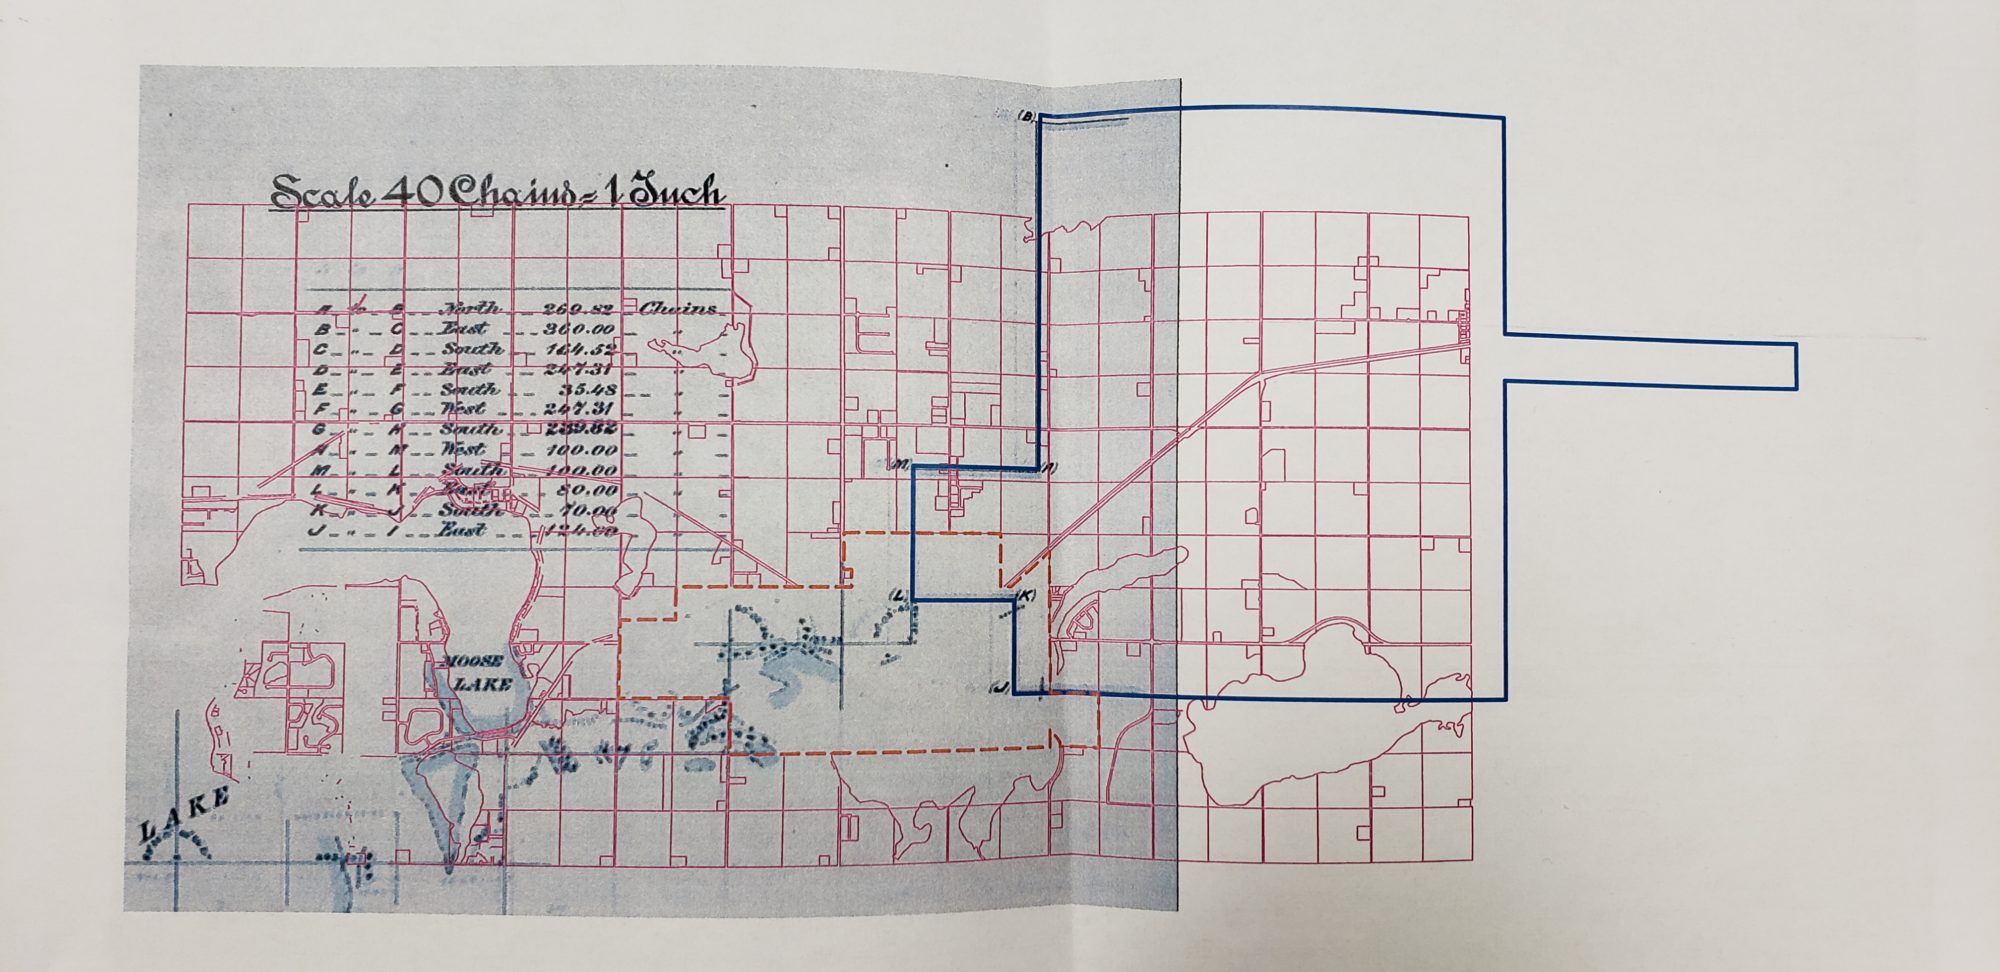 (B)
Scale 40 Chains = 1 Inch
A to B North 269.82 Chains
B " C East 360.00 "
C " D South 164.52 "
D " E East 247.31 "
E " F South 35.48 "
F " G West 247.31 "
G " H South 239.82 "
West 100.00 "
M " L South 100.00 "
L " K East 80.00 "
K " J South 70.00 "
J " I East "
(M)
(A)
(L)
(K)
MOOSE
LAKE
(J)
LAKE